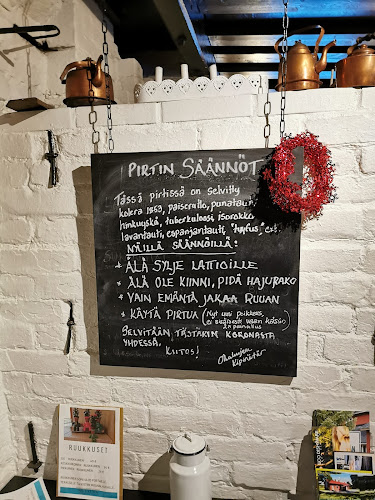 PIRTIN SÄÄNNÖT
Tässä pirtissä on selvitty
kolera 1853, paiserutto, punatauti,
hinkuyskä, tuberkuloosi, isorokko,
lavantauti, espanjantauti,
NÄILLÄ SÄÄNNÖILLÄ:
* ÄLÄ SYLJE LATTIOILLE
* ÄLÄ OLE KIINNI, PIDÄ HAJURAKO
* VAIN EMÄNTÄ JAKAA RUUAN
* KÄYTÄ PIRTUA (Nyt uusi poikkeus,
ei sisäisesti vaan käsiin
SELVITÄÄN TÄSTÄKIN KORONASTA
YHDESSÄ,
KIITOS!
RUUKKUSET